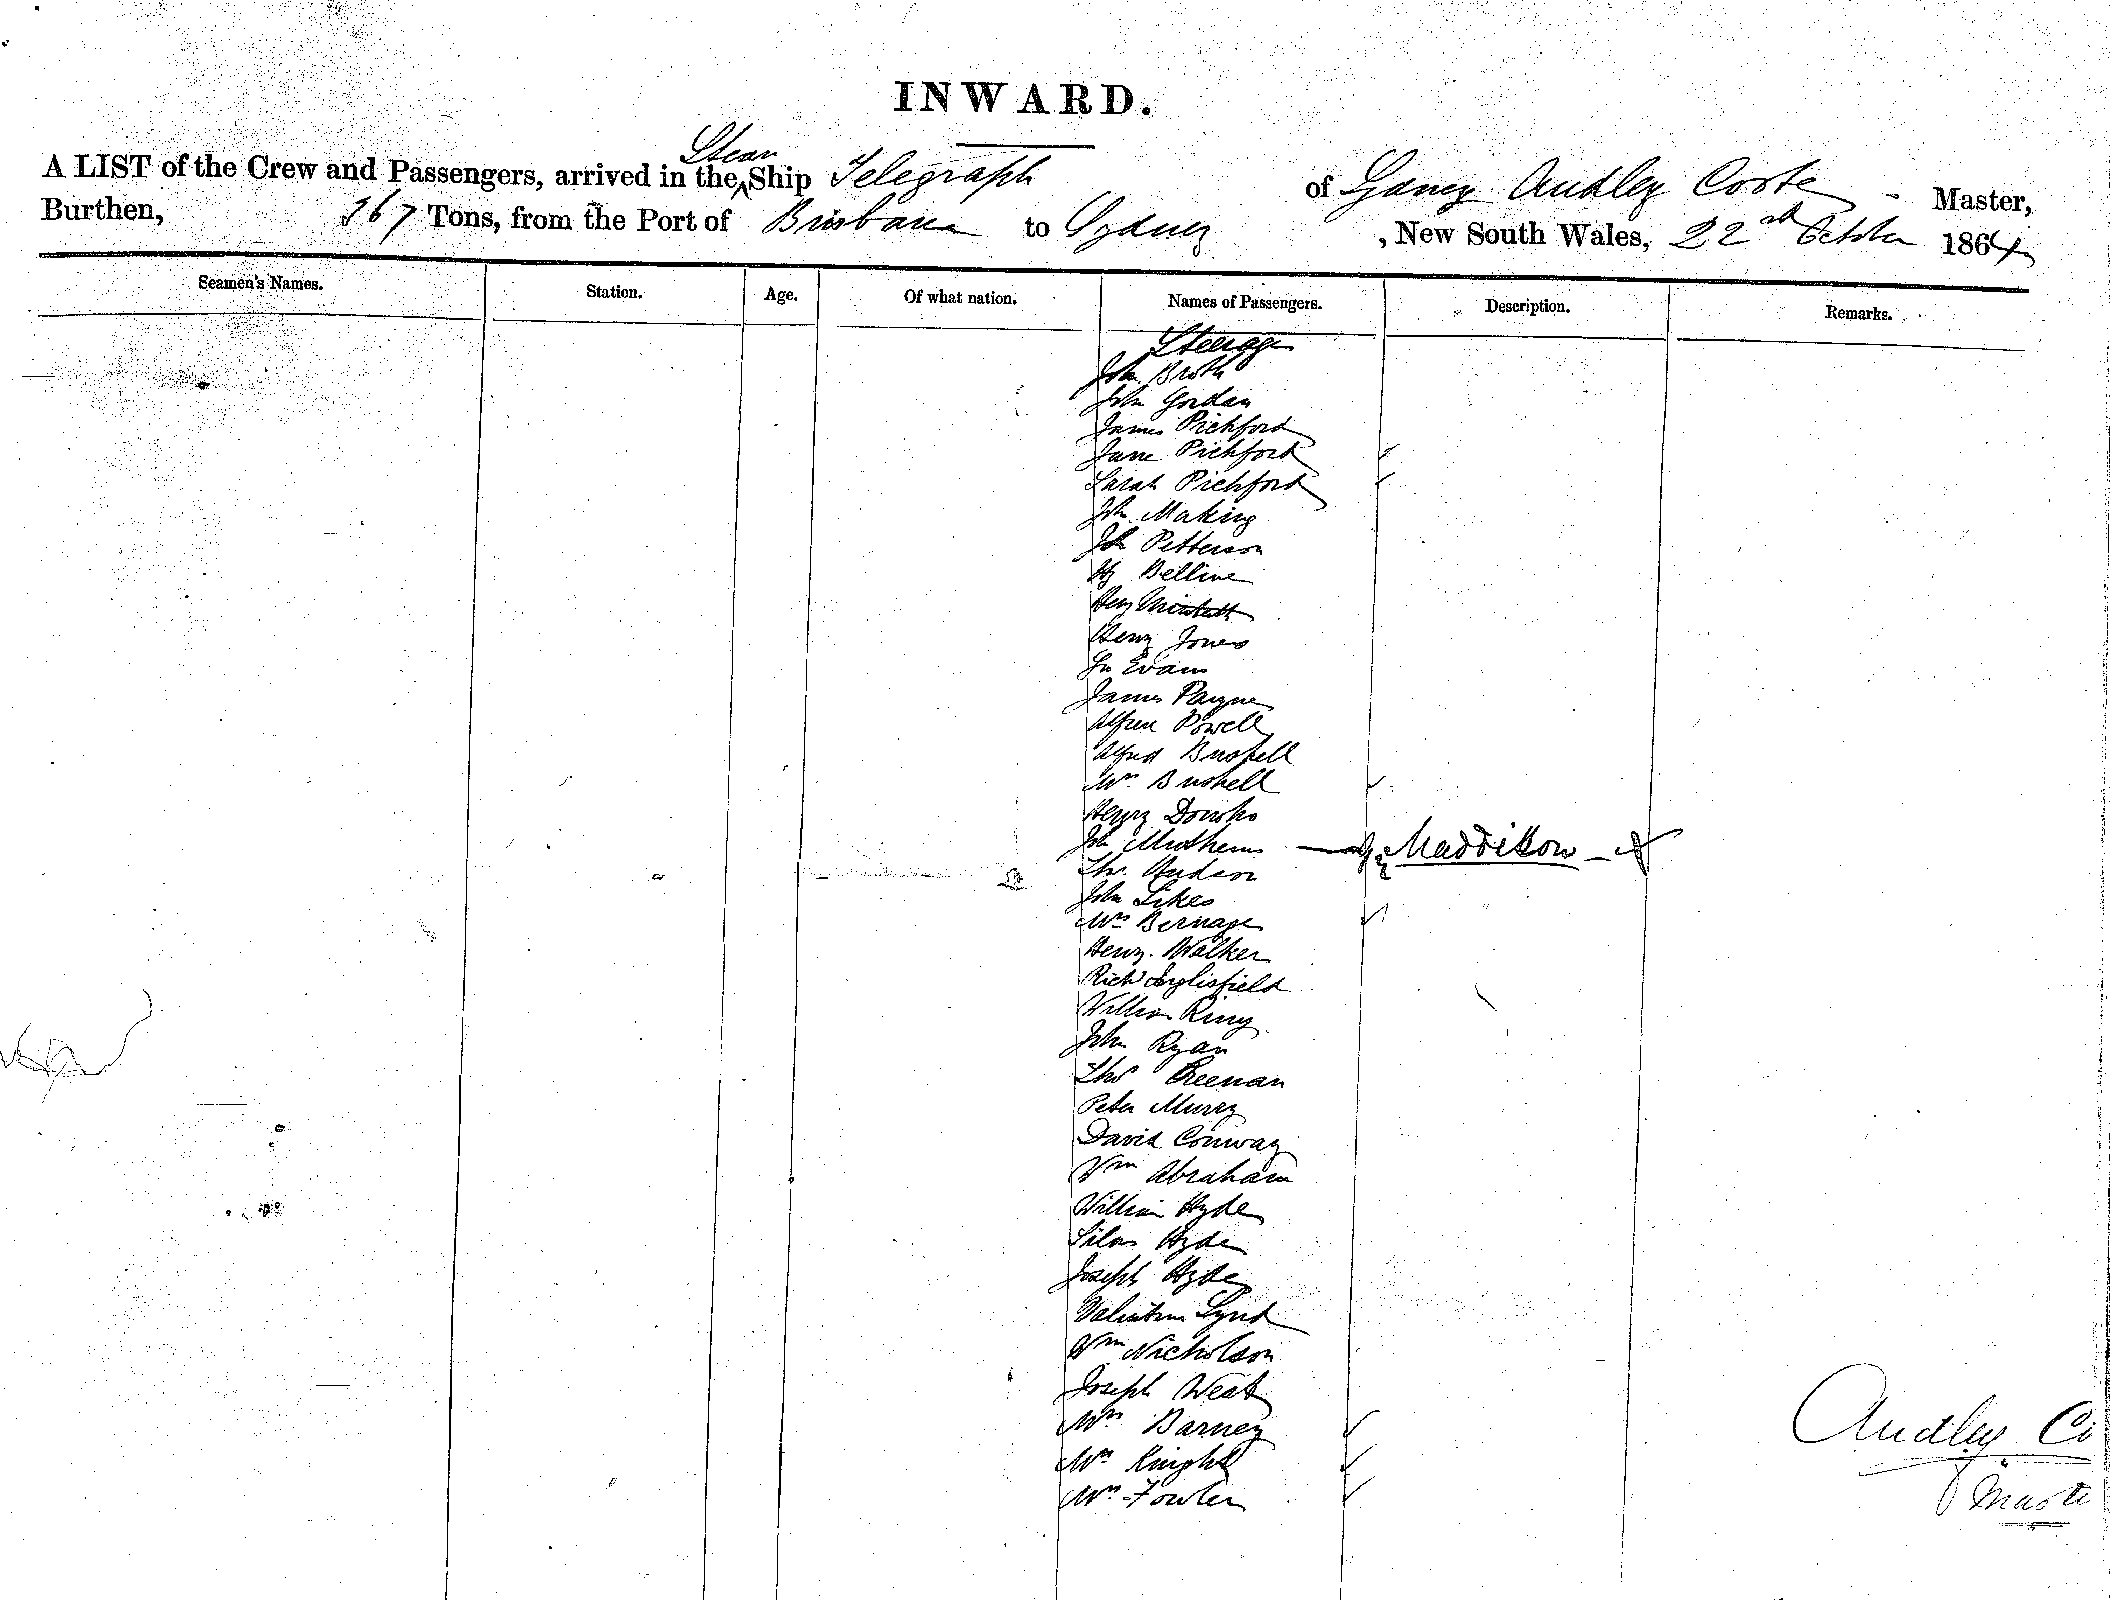 INWARD.
A LIST of the Crew and Passengers, arrived in the Steam Ship Telegraph of Sydney Audley Coote Master,
Burthen, 367 Tons, from the Port of Brisbane to Sydney , New South Wales, 22nd October 1864
Seamen's Names. Station. Age. Of what nation. Names of Passengers. Description. Remarks.
Steerage
John Broth
John Gordan
James Pichford
Jane Pichford
Sarah Pichford
John Making
Petterson
Hy Belline
Hen
Henry Jones
Evans
James Payne
Alfred Powell
Alfred Bushell
Mrs Bushell
Henry
John Maddison
Thos Hudson
John Sikes
Mrs Bernage
Henry Walker
Richd Inglisfield
William King
John Ryan
Thos Greenan
Peter Murry
David Conway
Wm Abraham
William Hyde
Silas Hyde
Joseph Hyde
Valentine
Wm Nicholson
Joseph West
Mrs Barney
Mrs Knight
Mrs Fowler
Audley Co
Maste